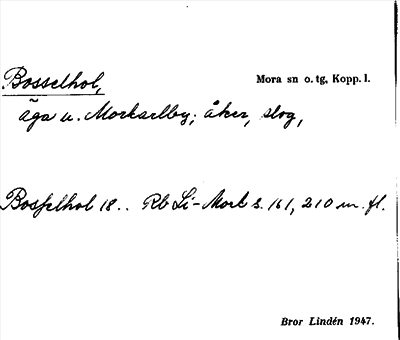 Bosselhol,
Mora sn o. tg, Kopp. l.
äga u. Morkarlby; åker, slog,
Bosselhol 18.. Rb Li-Mork s. 161, 210 m. fl.
Bror Lindén 1947.